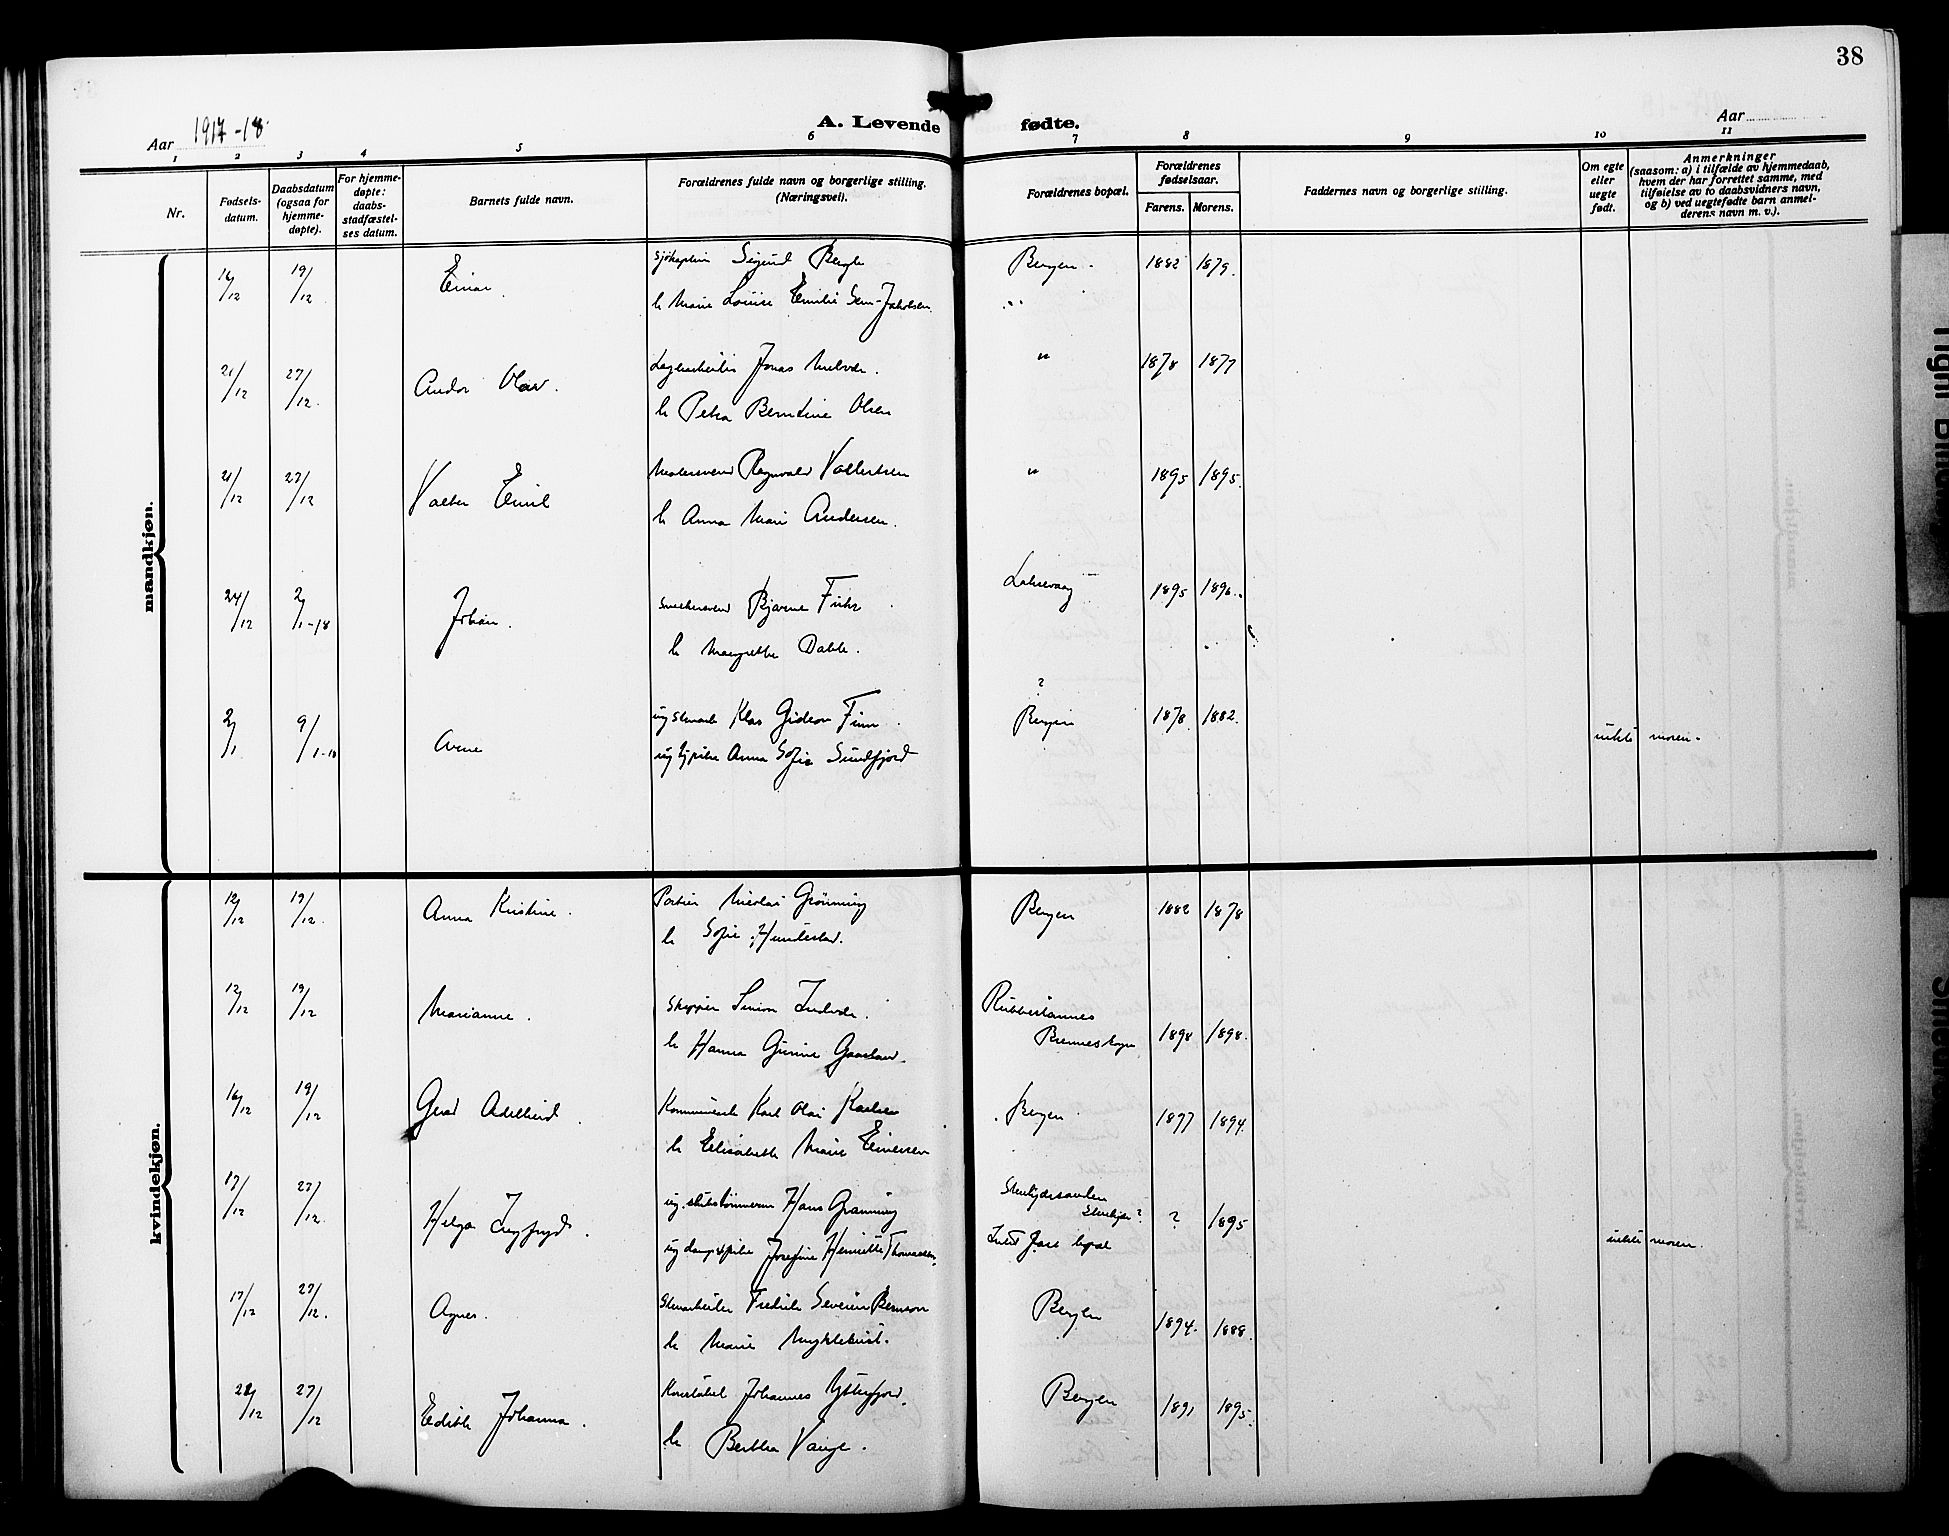 38
Aar 1917-18
A. Levende fødte.
Aar
1 2 3 4 5 6 7 8 9 10 11
Nr.
Fødsels-
datum.
Daabsdatum
(ogsaa for
hjemme-
døpte).
For hjemme-
døpte:
daabs-
stadfæstel-
ses datum.
Barnets fulde navn.
Forældrenes fulde navn og borgerlige stilling.
(Næringsvei).
Forældrenes bopæl.
Forældrenes
fødselsaar.
Farens. Morens.
Faddernes navn og borgerlige stilling.
Om egte
eller
uegte
født.
Anmerkninger
(saasom: a) i tilfælde av hjemmedaab,
hvem der har forrettet samme, med
tilføielse av to daabsvidners navn,
og b) ved uegtefødte barn anmel-
derens navn m. v.).
mandkjøn.
16/12 19/12 Einar Sigurd Bergen 1882 1879.
h Marie Louise Emilie Sem-Jakobsen "
21/12 27/12 Andor Olav. Jonas " 1878 1877
h Petra Berntine Olsen
21/12 27/12 Valter Emil Ragnvald " 1895 1895.
h Anna Mari Andersen.
24/12 2/1-18 Johan. Bjarne Laksevaag 1895 1896.
h Margrethe Dahle.
?
2/1 9/1-18 Arne Klas Gideon Finn Bergen 1878 1882. uekte moren.
Anna Sofie Sundfjord
kvindekjøn.
12/12 19/12 Anna Kristine. Portier Nicolai Grönning Bergen 1882 1878
h Sofie
12/12 19/12 Marianne. Skipper Simon Rubbestadnes
h Hanna Gurine Bremnes sogn 1898 1898.
16/12 19/12 Gerd Adelheid Karl Olai Karlsen Bergen 1877 1894.
h Elisabeth Marie Einersen
17/12 27/12 Helga Ingfryd. Hans Grønning ? 1895
Josefine Henriette Thomassen. uekte moren.
17/12 27/12. Agnes. Stenarbeider Fredrik Severin Bergen 1894. 1888.
h Marie Myklebust.
22/12 27/12 Edith Johanna. Konstabel Johannes Ytterfjord. Bergen 1891 1895.
h Bertha